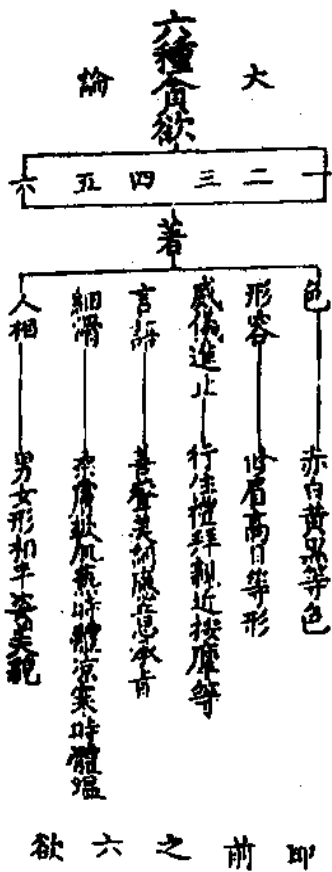 六種貪欲
大論
一 二 三 四 五 六
著
色 赤白黃黑等色
形容 脩眉高目等形
威儀進止 行住禮拜親近按摩等
言語 善聲美詞應意承旨
細滑 柔膚軟肌熱時體涼寒時體溫
人相 男女形相 姿美貌
即前之六欲